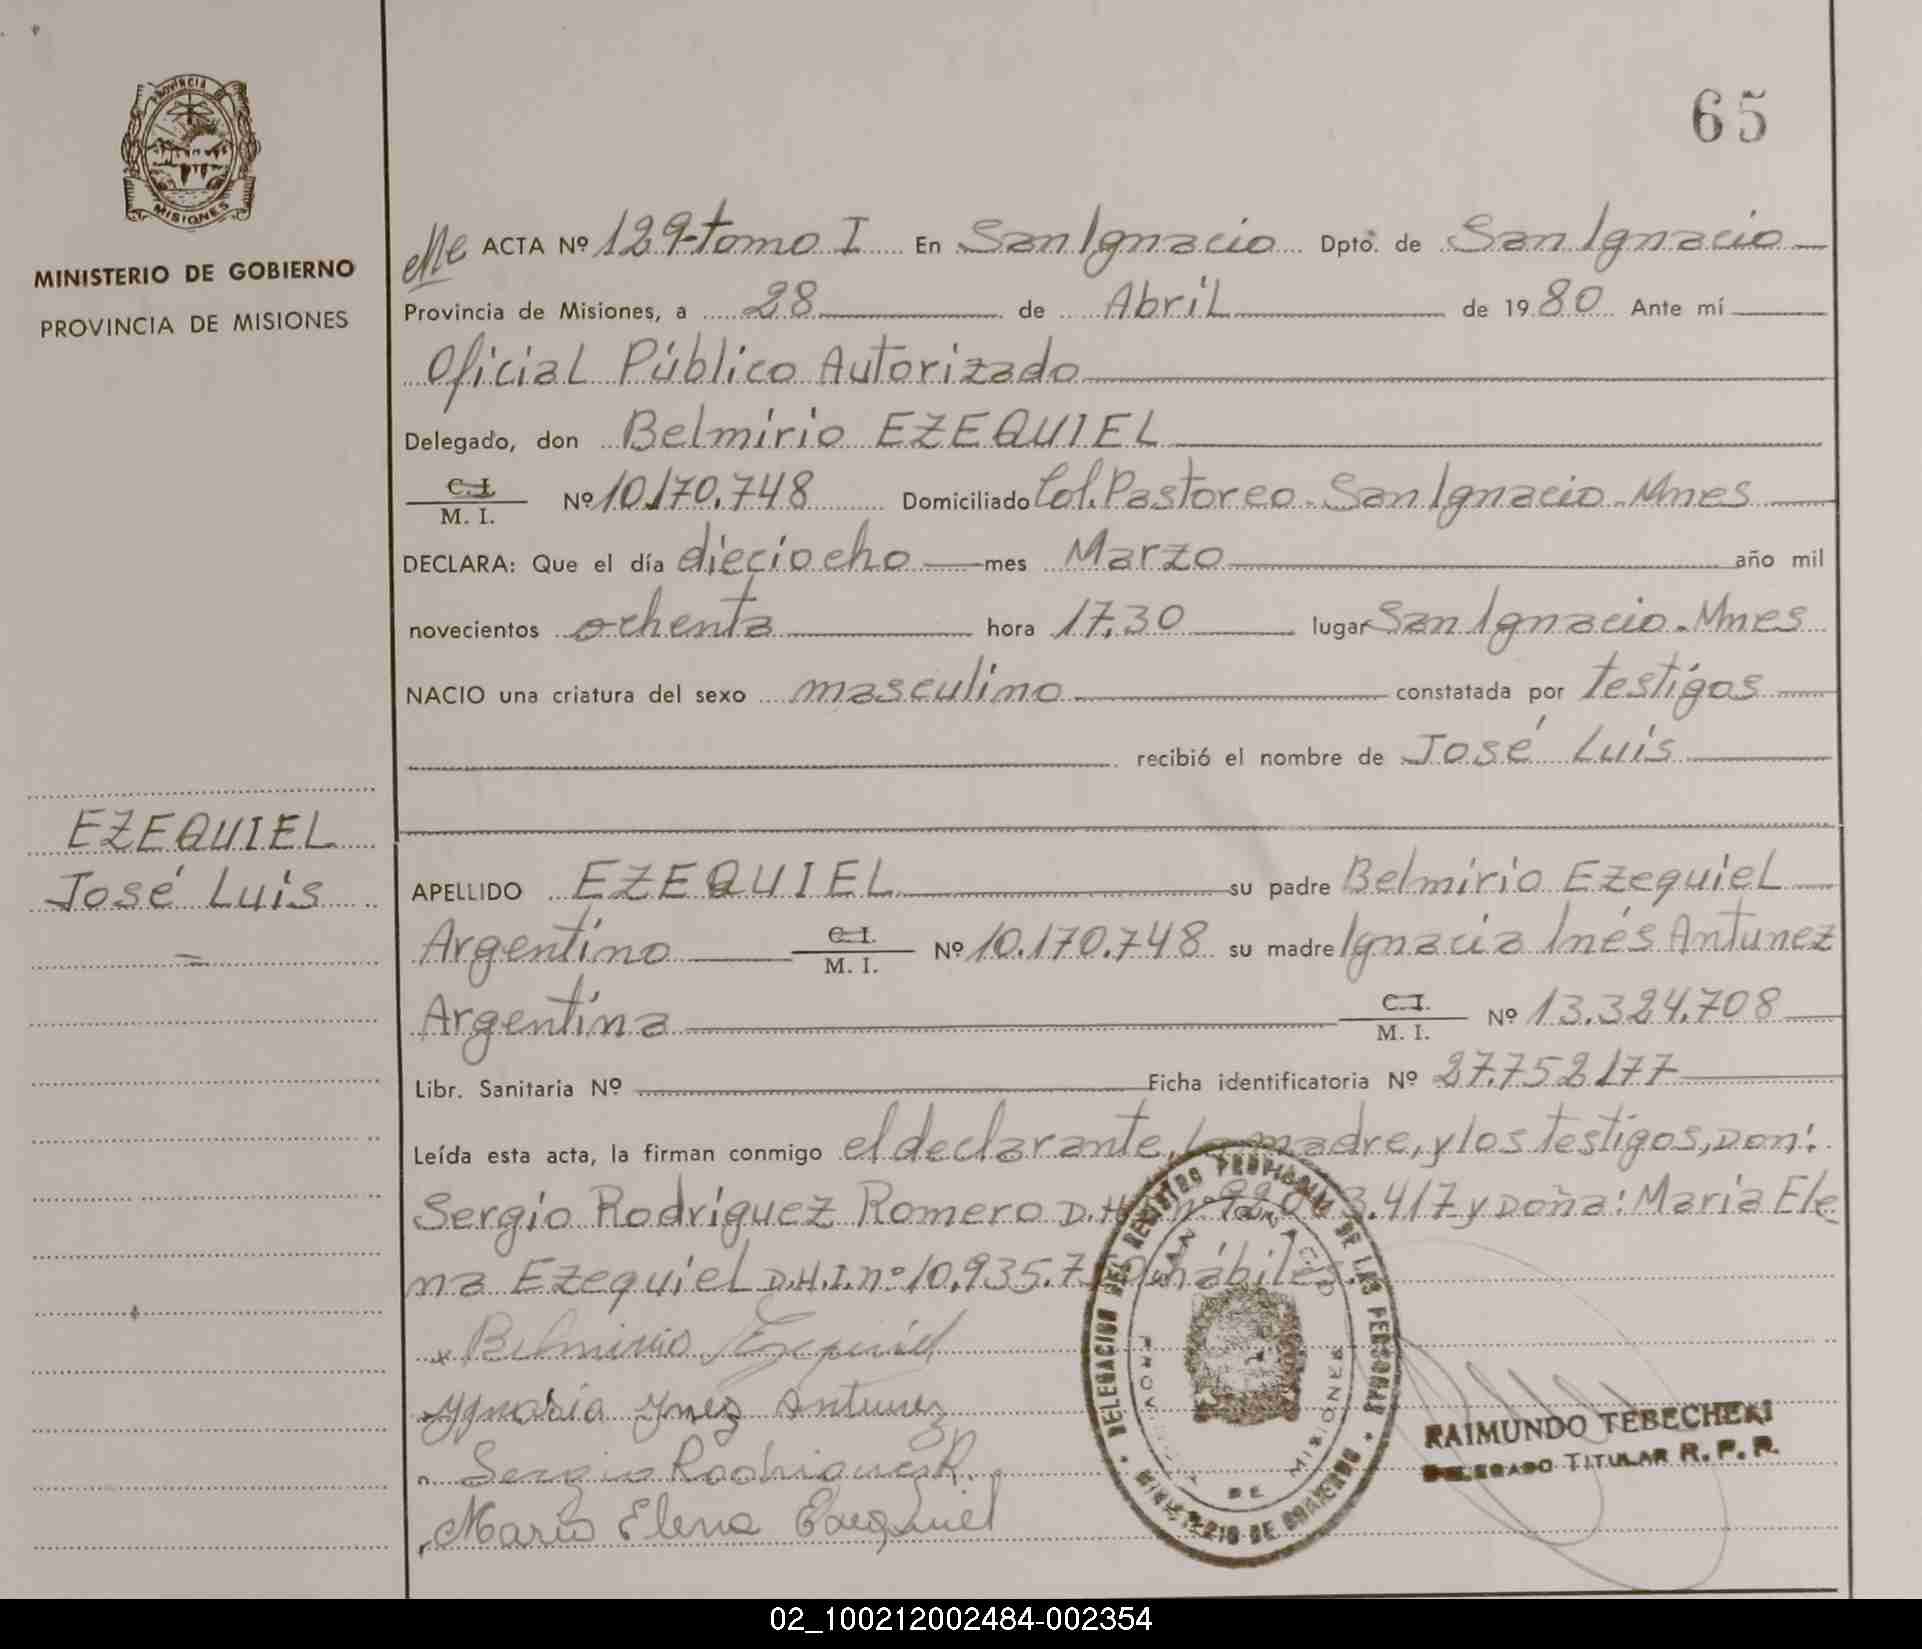 65
PROVINCIA DE
MISIONES
MINISTERIO DE GOBIERNO
PROVINCIA DE MISIONES
ACTA Nº 129-tomo I En San Ignacio Dpto. de San Ignacio
Provincia de Misiones, a 28 de Abril de 1980 Ante mí
Oficial Público Autorizado
Delegado, don Belmirio EZEQUIEL
C. I.
M. I. Nº 10.170.748 Domiciliado Col. Pastoreo - San Ignacio - Mnes
DECLARA: Que el día dieciocho mes Marzo año mil
novecientos ochenta hora 17,30 lugar San Ignacio - Mnes
NACIO una criatura del sexo masculino constatada por testigos
recibió el nombre de José Luis
EZEQUIEL
José Luis
=
APELLIDO EZEQUIEL su padre Belmirio Ezequiel
Argentino C. I. M. I. Nº 10.170.748 su madre Ignacia Inés Antunez
Argentina C. I. M. I. Nº 13.324.708
Libr. Sanitaria Nº Ficha identificatoria Nº 27.752.177
Leída esta acta, la firman conmigo el declarante, la madre, y los testigos, Don:
Sergio Rodriguez Romero y Doña: Maria Ele
na Ezequiel D.N.I. nº 10.935. hábiles.
Belmirio Ezequiel
Ygnasia Ynez Antunez
Sergio Rodriguez R.
Maria Elena Ezequiel
DELEGACION DEL REGISTRO PROVINCIAL DE LAS PERSONAS
MINISTERIO DE GOBIERNO
SAN IGNACIO
DE MISIONES
RAIMUNDO TEBECHEKI
DELEGADO TITULAR R. P. P.
02_100212002484-002354